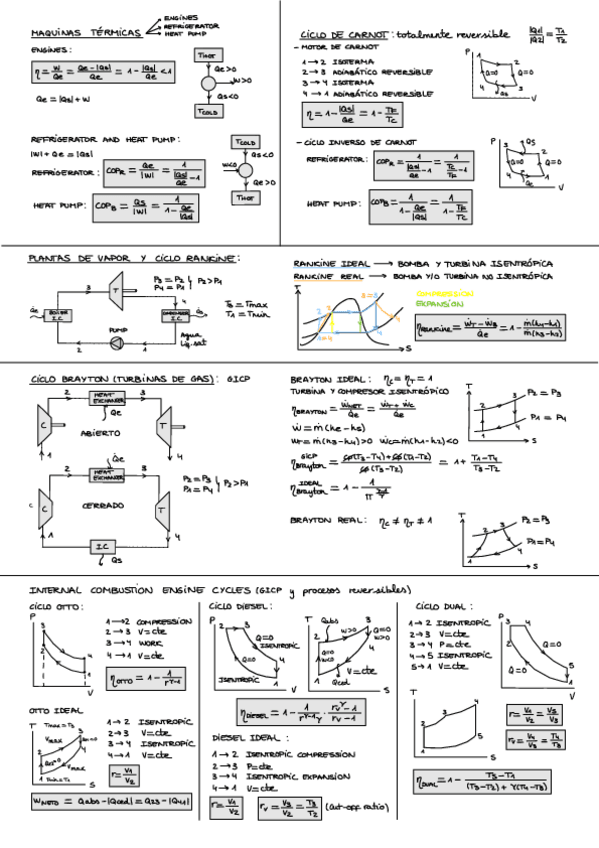 MAQUINAS TÉRMICAS
ENGINES
REFRIGERATOR
HEAT PUMP
ENGINES:
η = W/Qe = (Qe-|Qs|)/Qe = 1-|Qs|/Qe < 1
Qe = |Qs|+W
THOT
Qe>0
W>0
Qs<0
TCOLD
REFRIGERATOR AND HEAT PUMP:
|W|+Qe = |Qs|
REFRIGERATOR: COPR = Qe/|W| = 1/(|Qs|/Qe -1)
HEAT PUMP: COPB = Qs/|W| = 1/(1-Qe/|Qs|)
TCOLD
Qs<0
W<0
Qe>0
THOT
CICLO DE CARNOT: totalmente reversible
|Q1|/|Q2| = T1/T2
- MOTOR DE CARNOT
1→2 ISOTERMA
2→3 ADIABÁTICO REVERSIBLE
3→4 ISOTERMA
4→1 ADIABÁTICO REVERSIBLE
η = 1-|Qs|/Qe = 1-TF/TC
P
Q=0
Q=0
V
- CICLO INVERSO DE CARNOT
REFRIGERATOR: COPR = 1/(|Qs|/Qe -1) = 1/(TC/TF -1)
HEAT PUMP: COPB = 1/(1-Qe/|Qs|) = 1/(1-TF/TC)
P
Qs
Q=0
Q=0
Qe
V
PLANTAS DE VAPOR Y CICLO RANKINE:
P3 = P2
P4 = P1
P2>P1
T3 = Tmax
T1 = Tmin
Qe
BOILER
I.C.
T
CONDENSER
I.C.
Qs
PUMP
Agua
Liq.sat
RANKINE IDEAL → BOMBA Y TURBINA ISENTRÓPICA
RANKINE REAL → BOMBA Y/O TURBINA NO ISENTRÓPICA
COMPRESSION
EXPANSIÓN
ηRANKINE = (ẆT-ẆB)/Q̇e = 1-ṁ(h4-h1)/ṁ(h3-h2)
T
S
CICLO BRAYTON (TURBINAS DE GAS): GICP
HEAT
EXCHANGER
Qe
C
T
ABIERTO
Q̇e
HEAT
EXCHANGER
C
T
CERRADO
P2 = P3
P1 = P4
P2>P1
I.C
Qs
BRAYTON IDEAL: ηC = ηT = 1
TURBINA Y COMPRESOR ISENTRÓPICO
ηBRAYTON = ẆNET/Q̇e = (ẆT+ẆC)/Q̇e
Ẇ = ṁ(he-hs)
ẆT = ṁ(h3-h4)>0 ẆC = ṁ(h1-h2)<0
GICP
ηBrayton = (cp(T3-T4)+cp(T1-T2))/(cp(T3-T2)) = 1+(T1-T4)/(T3-T2)
IDEAL
ηBrayton = 1-
T
P2 = P3
P1 = P4
S
BRAYTON REAL: ηC ≠ ηT ≠ 1
T
P2=P3
P1=P4
S
INTERNAL COMBUSTION ENGINE CYCLES (GICP y procesos reversibles)
CICLO OTTO:
1→2 COMPRESSION
2→3 V=cte
3→4 WORK
4→1 V=cte
ηOTTO = 1-1/r^(γ-1)
P
V
OTTO IDEAL
1→2 ISENTROPIC
2→3 V=cte
3→4 ISENTROPIC
4→1 V=cte
r=V1/V2
T
Tmax=T3
Vmax
Tmin=T1
S
WNETO = Qabs-|Qced| = Q23-|Q41|
CICLO DIESEL:
P
Q=0
ISENTROPIC
Q=0
ISENTROPIC
V
T
Qabs
W>0
Q=0
W>0
Q=0
W<0
V=cte
Qced
S
ηDIESEL = 1-1/(r^(γ-1)γ) · (rv^γ-1)/(rv-1)
DIESEL IDEAL:
1→2 ISENTROPIC COMPRESSION
2→3 P=cte
3→4 ISENTROPIC EXPANSION
4→1 V=cte
r=V1/V2
rv=V3/V2=T3/T2
(cut-off ratio)
CICLO DUAL:
1→2 ISENTROPIC
2→3 V=cte
3→4 P=cte
4→5 ISENTROPIC
5→1 V=cte
P
Q=0
Q=0
V
T
S
r=V1/V2=V5/V3
rv=V4/V3=T4/T3
ηDUAL = 1-(T5-T1)/((T3-T2)+γ(T4-T3))